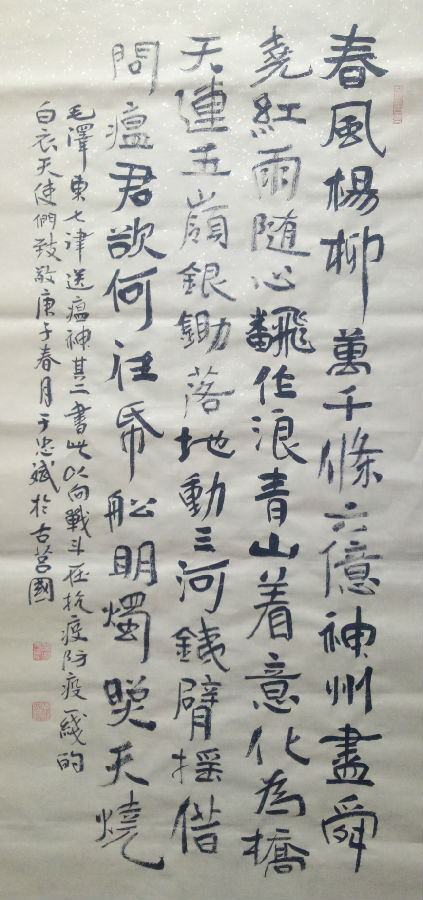 春風楊柳萬千條六億神州盡舜
堯紅雨随心飜作浪青山着意化為橋
天連五嶺銀鋤落地動三河銕臂摇借
問瘟君欲何往帋舩明燭照天燒
毛澤東七律送瘟神其二書此以向戰斗在抗疫防疫一綫的
白衣天使們致敬庚子春月于忠斌於古莒國